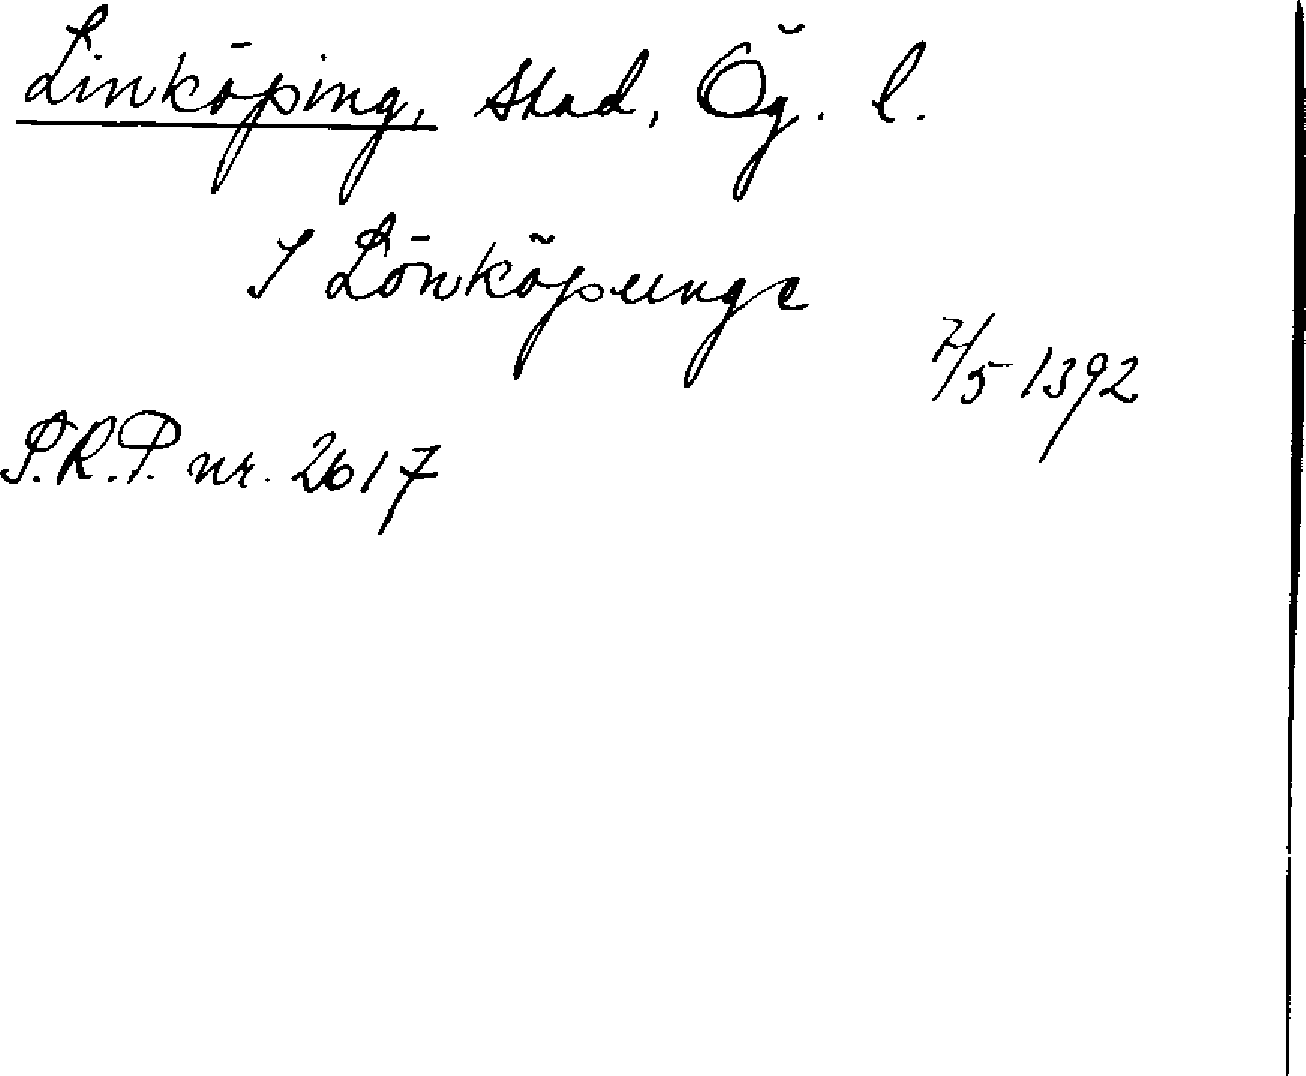 Linköping, stad, Ög. l.
I Lönköpunge
7/5 1392
S.R.P. nr. 2617